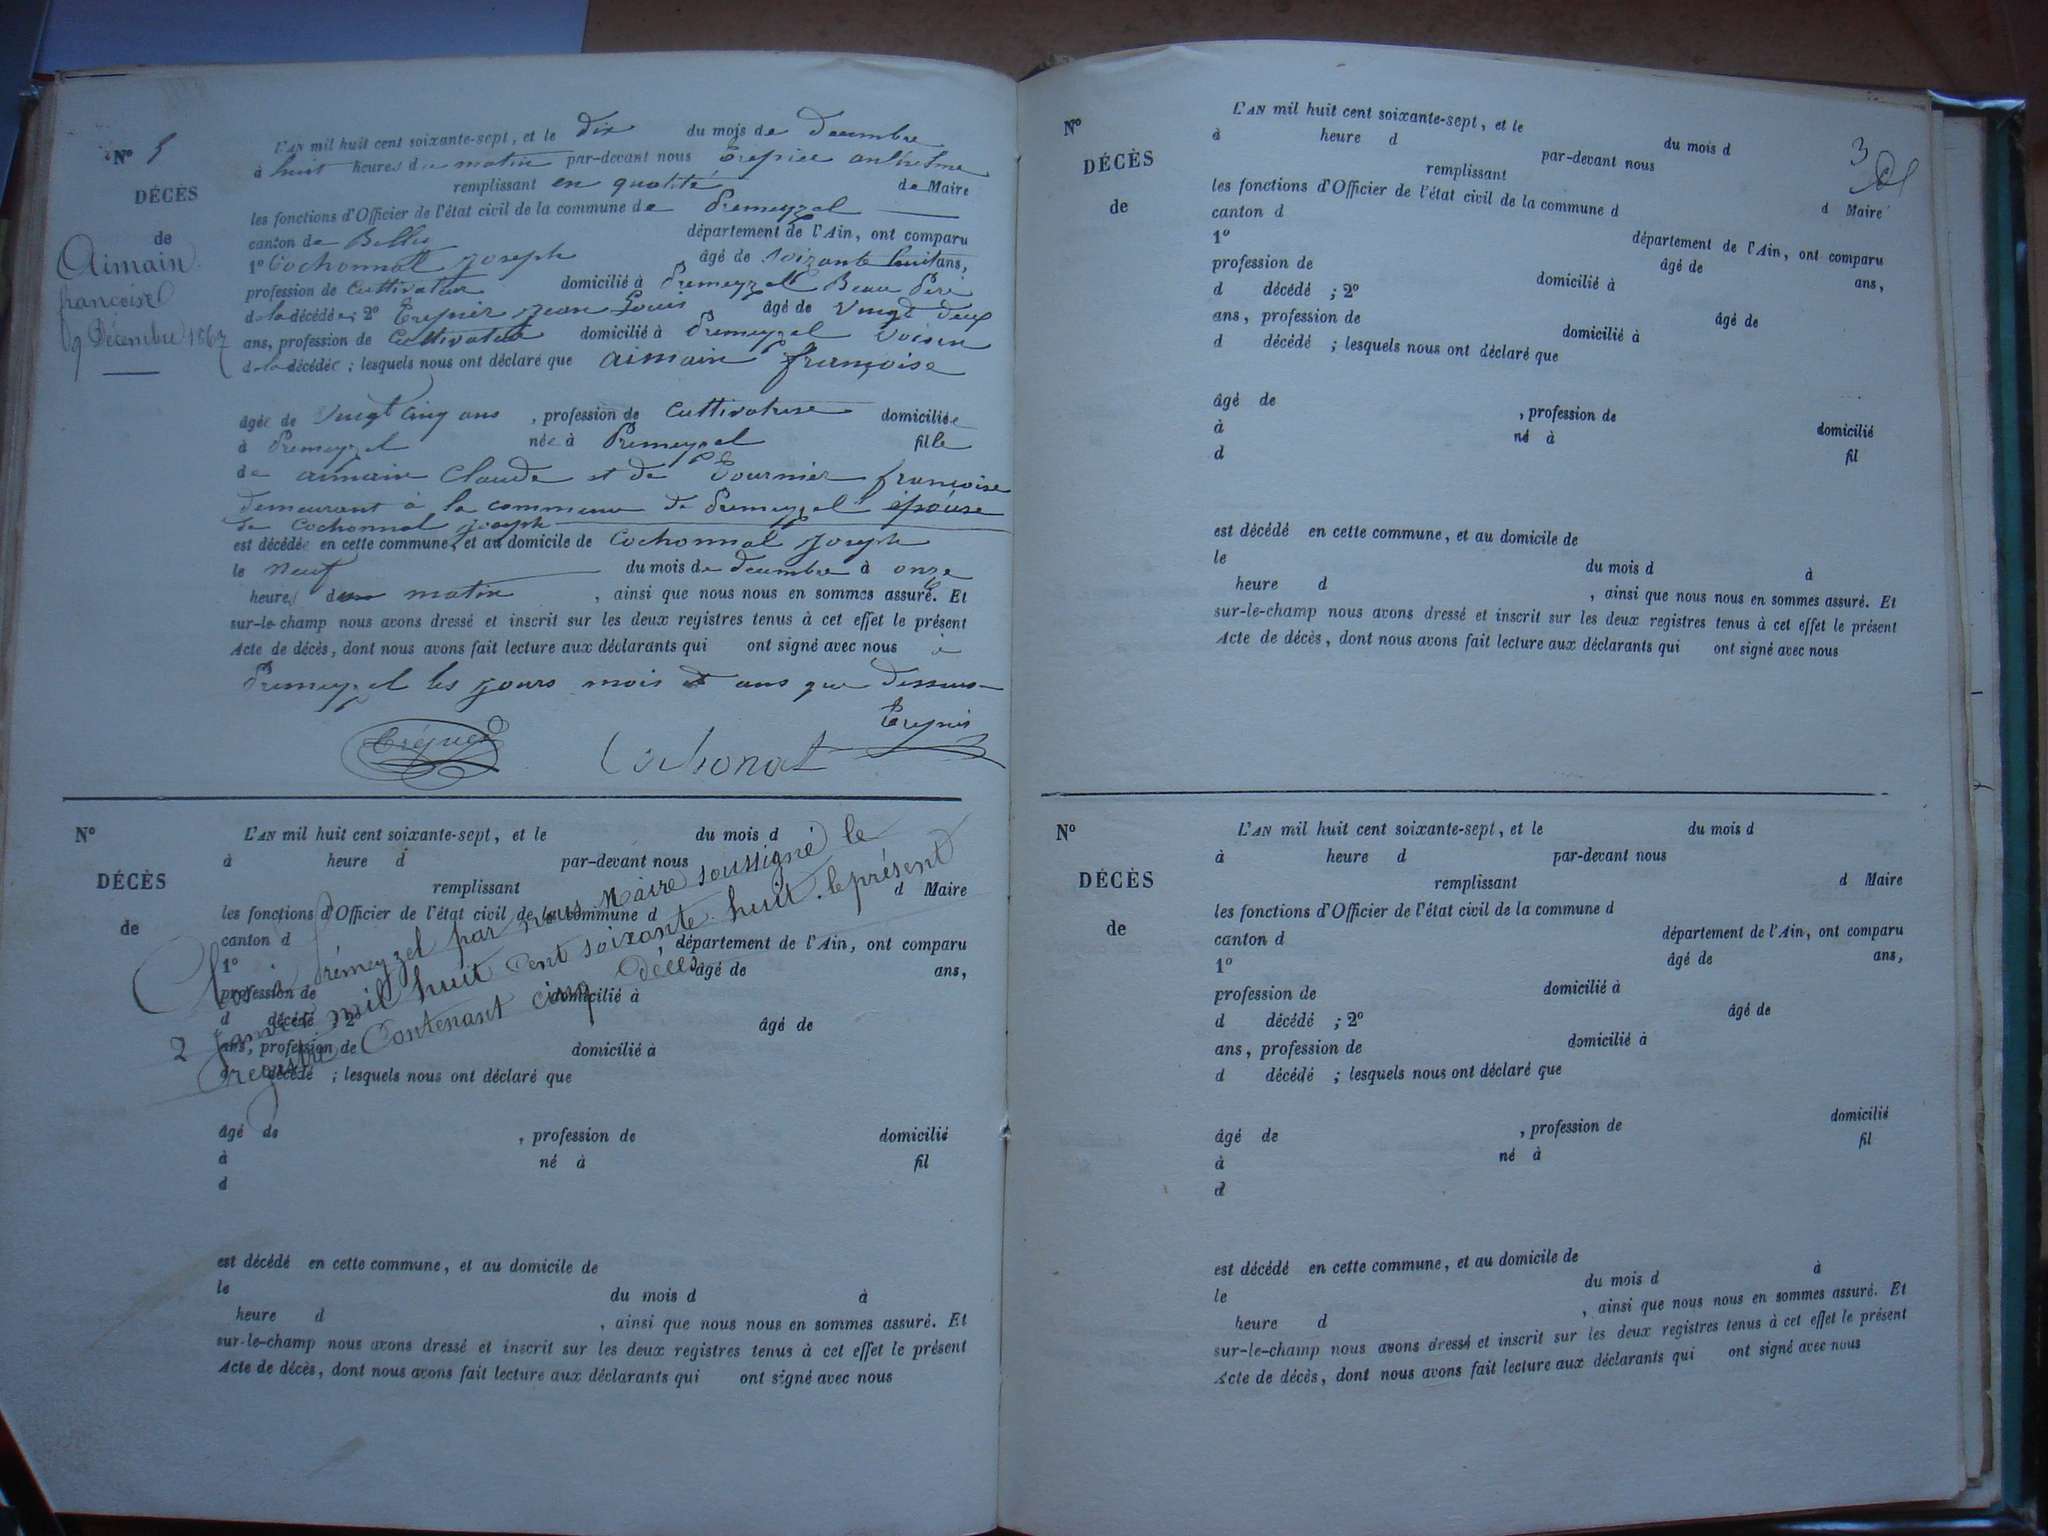 N° 5
DÉCÈS
de
Aimain
françoise
9 Décembre 1867
L'AN mil huit cent soixante-sept, et le dix du mois de decembre
à huit heures du matin par-devant nous Trepier anthelme
remplissant en qualité de Maire
les fonctions d'Officier de l'état civil de la commune de Premeyzel
canton de Belley département de l'Ain, ont comparu
1° Cochonnat joseph âgé de soixante huit ans,
profession de Cultivateur domicilié à Premeyzel Beau Père
de la décédée; 2° Trepier jean Louis âgé de vingt deux
ans, profession de Cultivateur domicilié à Premeyzel Voisin
de la décédée; lesquels nous ont déclaré que aimain françoise
âgée de vingt cinq ans, profession de Cultivatrice domiciliée
à Premeyzel née à Premeyzel fille
de aimain Claude et de Tournier françoise
demeurant à la commune de Premeyzel épouse
de Cochonnat joseph
est décédée en cette commune, et au domicile de Cochonnat joseph
le neuf du mois de decembre à onze
heures du matin, ainsi que nous nous en sommes assuré. Et
sur-le-champ nous avons dressé et inscrit sur les deux registres tenus à cet effet le présent
Acte de décès, dont nous avons fait lecture aux déclarants qui ont signé avec nous à
Premeyzel les jours mois et ans que dessus
Cochonat
N°
DÉCÈS
de
L'AN mil huit cent soixante-sept, et le du mois d
à heure d par-devant nous
remplissant d Maire
les fonctions d'Officier de l'état civil de la commune d
canton d , département de l'Ain, ont comparu
1° âgé de ans,
profession de domicilié à
d décédé ; 2° âgé de
ans, profession de domicilié à
d décédé ; lesquels nous ont déclaré que
Clos à Prémeyzel par nous Maire soussigné le
2 Janvier mil huit cent soixante huit. le présent
registre Contenant cinq décès
âgé de , profession de domicilié
à né à fil
d
est décédé en cette commune, et au domicile de
le du mois d à
heure d , ainsi que nous nous en sommes assuré. Et
sur-le-champ nous avons dressé et inscrit sur les deux registres tenus à cet effet le présent
Acte de décès, dont nous avons fait lecture aux déclarants qui ont signé avec nous
3
N°
DÉCÈS
de
L'AN mil huit cent soixante-sept, et le du mois d
à heure d par-devant nous
remplissant d Maire
les fonctions d'Officier de l'état civil de la commune d
canton d département de l'Ain, ont comparu
1° âgé de ans,
profession de domicilié à
d décédé ; 2° âgé de
ans, profession de domicilié à
d décédé ; lesquels nous ont déclaré que
âgé de , profession de domicilié
à né à fil
d
est décédé en cette commune, et au domicile de
le du mois d à
heure d , ainsi que nous nous en sommes assuré. Et
sur-le-champ nous avons dressé et inscrit sur les deux registres tenus à cet effet le présent
Acte de décès, dont nous avons fait lecture aux déclarants qui ont signé avec nous
N°
DÉCÈS
de
L'AN mil huit cent soixante-sept, et le du mois d
à heure d par-devant nous
remplissant d Maire
les fonctions d'Officier de l'état civil de la commune d
canton d département de l'Ain, ont comparu
1° âgé de ans,
profession de domicilié à
d décédé ; 2° âgé de
ans, profession de domicilié à
d décédé ; lesquels nous ont déclaré que
âgé de , profession de domicilié
à né à fil
d
est décédé en cette commune, et au domicile de
le du mois d à
heure d , ainsi que nous nous en sommes assuré. Et
sur-le-champ nous avons dressé et inscrit sur les deux registres tenus à cet effet le présent
Acte de décès, dont nous avons fait lecture aux déclarants qui ont signé avec nous